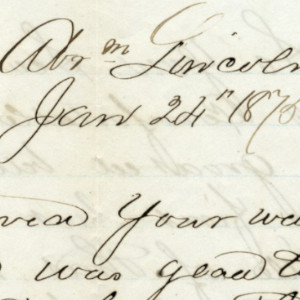 Abrm Lincoln
Jan 24" 187
Your wa
was glad t